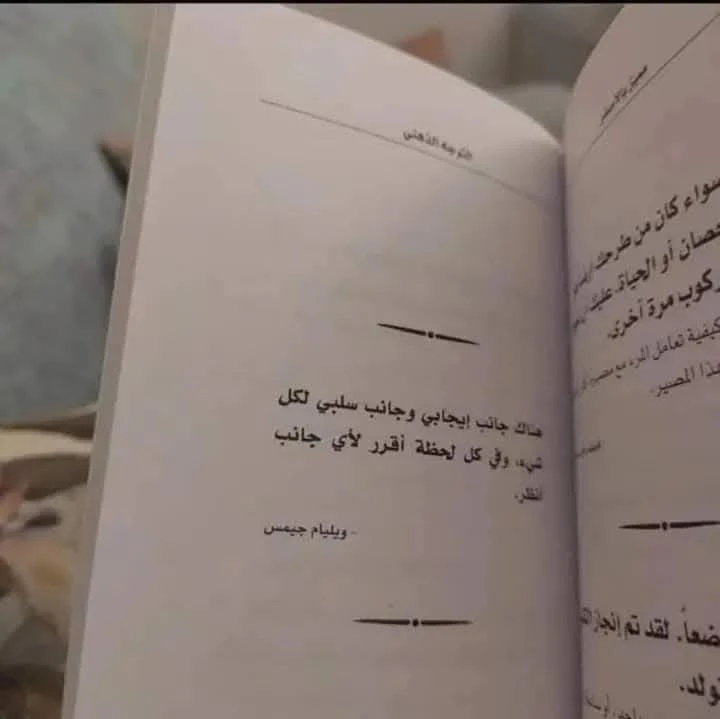 التوجه الذهني
هناك جانب إيجابي وجانب سلبي لكل
شيء، وفي كل لحظة أقرر لأي جانب
أنظر.
- ويليام جيمس
سواء كان من طرحك
حصان أو الحياة، عليك
ركوب مرة أخرى.
كيفية تعامل المرء مع
هذا المصير.
لقد تم إنجاز